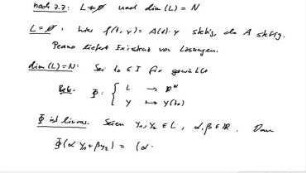 noch z.z.: L ≠ ∅ und dim(L) = N
L ≠ ∅: f(t,y) = A(t)·y stetig, da A stetig.
Peano liefert Existenz von Lösungen.
dim(L) = N: Sei t₀ ∈ I fix gewählt
Beh. Φ: { L → ℝᴺ
y ↦ y(t₀)
Φ ist linear. Seien y₁, y₂ ∈ L, α, β ∈ ℝ. Dann
Φ(αy₁ + βy₂) = (α